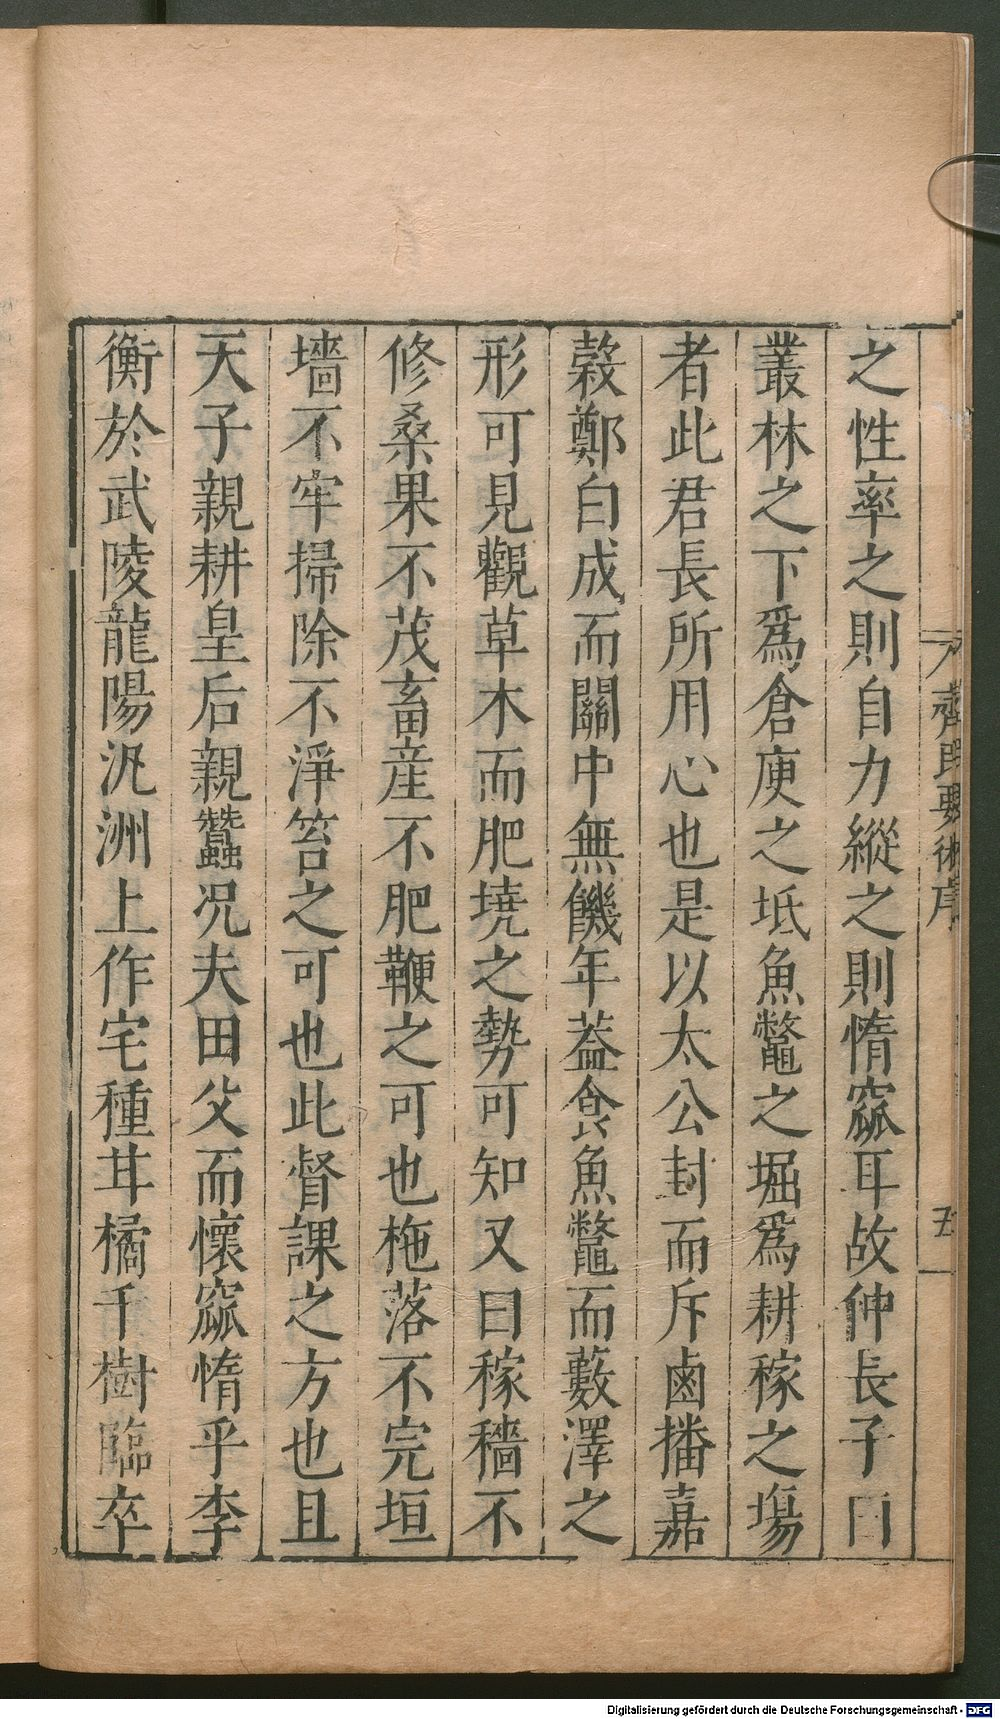 之性率之則自力縱之則惰窳耳故仲長子曰
叢林之下爲倉庾之坻魚鼈之堀爲耕稼之塲
者此君長所用心也是以太公封而斥鹵播嘉
榖鄭白成而關中無饑年葢食魚鼈而藪澤之
形可見觀草木而肥墝之勢可知又曰稼穡不
修桑果不茂畜産不肥鞭之可也杝落不完垣
墻不牢掃除不淨笞之可也此督課之方也且
天子親耕皇后親蠶况夫田父而懷窳惰乎李
衡於武陵龍陽汎洲上作宅種甘橘千樹臨卒
齊民要術序 五
Digitalisierung gefördert durch die Deutsche Forschungsgemeinschaft - DFG